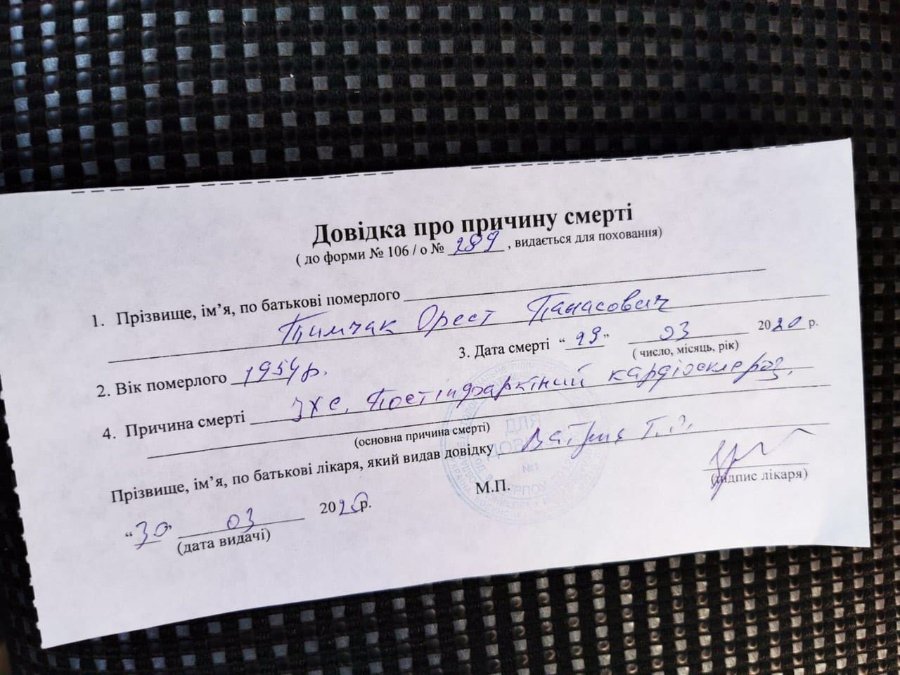 Довідка про причину смерті
( до форми № 106 / о № 289 , видається для поховання)
1. Прізвище, ім’я, по батькові померлого
Тимчак Орест Панасович
2. Вік померлого 1954 р. 3. Дата смерті “29” 03 2020 р.
( число, місяць, рік)
4. Причина смерті ІХС. Постінфарктний кардіосклероз.
(основна причина смерті)
Прізвище, ім’я, по батькові лікаря, який видав довідку
ДЛЯ
ДОВІДОК
№1
М.П.
(підпис лікаря)
“30” 03 2020р.
(дата видачі)